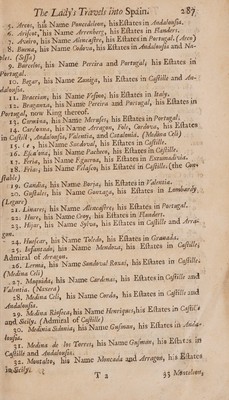 The Lady's Travels into Spain. 287
5. Arcos, his Name Poncedeleon, his Estates in Andalousia.
6. Arischot, his Name Aremberg, his Estates in Flanders.
7. Aveiro, his Name Alencastre, his Estates in Portugal. (Arco)
8. Baena, his Name Cordova, his Estates in Andalousia and Na-
ples. (Sessa)
9. Barcelos, his Name Pereira and Portugal, his Estates in
Portugal.
10. Bejar, his Name Zuniga, his Estates in Castille and An-
dalousia.
11. Bracciano, his Name Ursino, his Estates in Italy.
12. Braganza, his Name Pereira and Portugal, his Estates in
Portugal, now King thereof.
13. Camina, his Name Meneses, his Estates in Portugal.
14. Cardonna, his Name Arragon, Folc, Cordova, his Estates
in Castille, Andalousia, Valentia, and Catalonia. (Medina Celi)
15. his Name Sandoval, his Estates in Castille.
16. his Name Pacheco, his Estates in Castille.
17. Feria, his Name Figueroa, his Estates in Extramadura.
18. Frias, his Name Velasco, his Estates in Castille. (the Con-
stable)
19. Gandia, his Name Borja, his Estates in Valentia.
20. Guastalle, his Name Gonzaga, his Estates in Lombardy.
21. Linares, his Name Alencastre, his Estates in Portugal.
22. Havre, his Name Croy, his Estates in Flanders.
23. Hijar, his Name Sylva, his Estates in Castille and Arra-
gon.
24. Huescar, his Name Toledo, his Estates in Granada.
25. Infantado, his Name Mendoza, his Estates in Castille,
Admiral of Arragon.
26. Lerma, his Name Sandoval Roxas, his Estates in Castille.
(Medina Celi)
27. Maqueda, his Name Cardenas, his Estates in Castille and
Valentia. (Naxera)
28. Medina Celi, his Name Cerda, his Estates in Castille and
Andalousia.
29. Medina Rioseca, his Name Henriques, his Estates in Castille
and Sicily. (Admiral of Castille)
30. Medina Sidonia, his Name Gusman, his Estates in Anda-
lousia.
31. Medina de los Torres, his Name Gusman, his Estates in
Castille and Andalousia.
32. Montalto, his Name Moncada and Arragon, his Estates
in Sicily.
T 2 33 Monteleon,